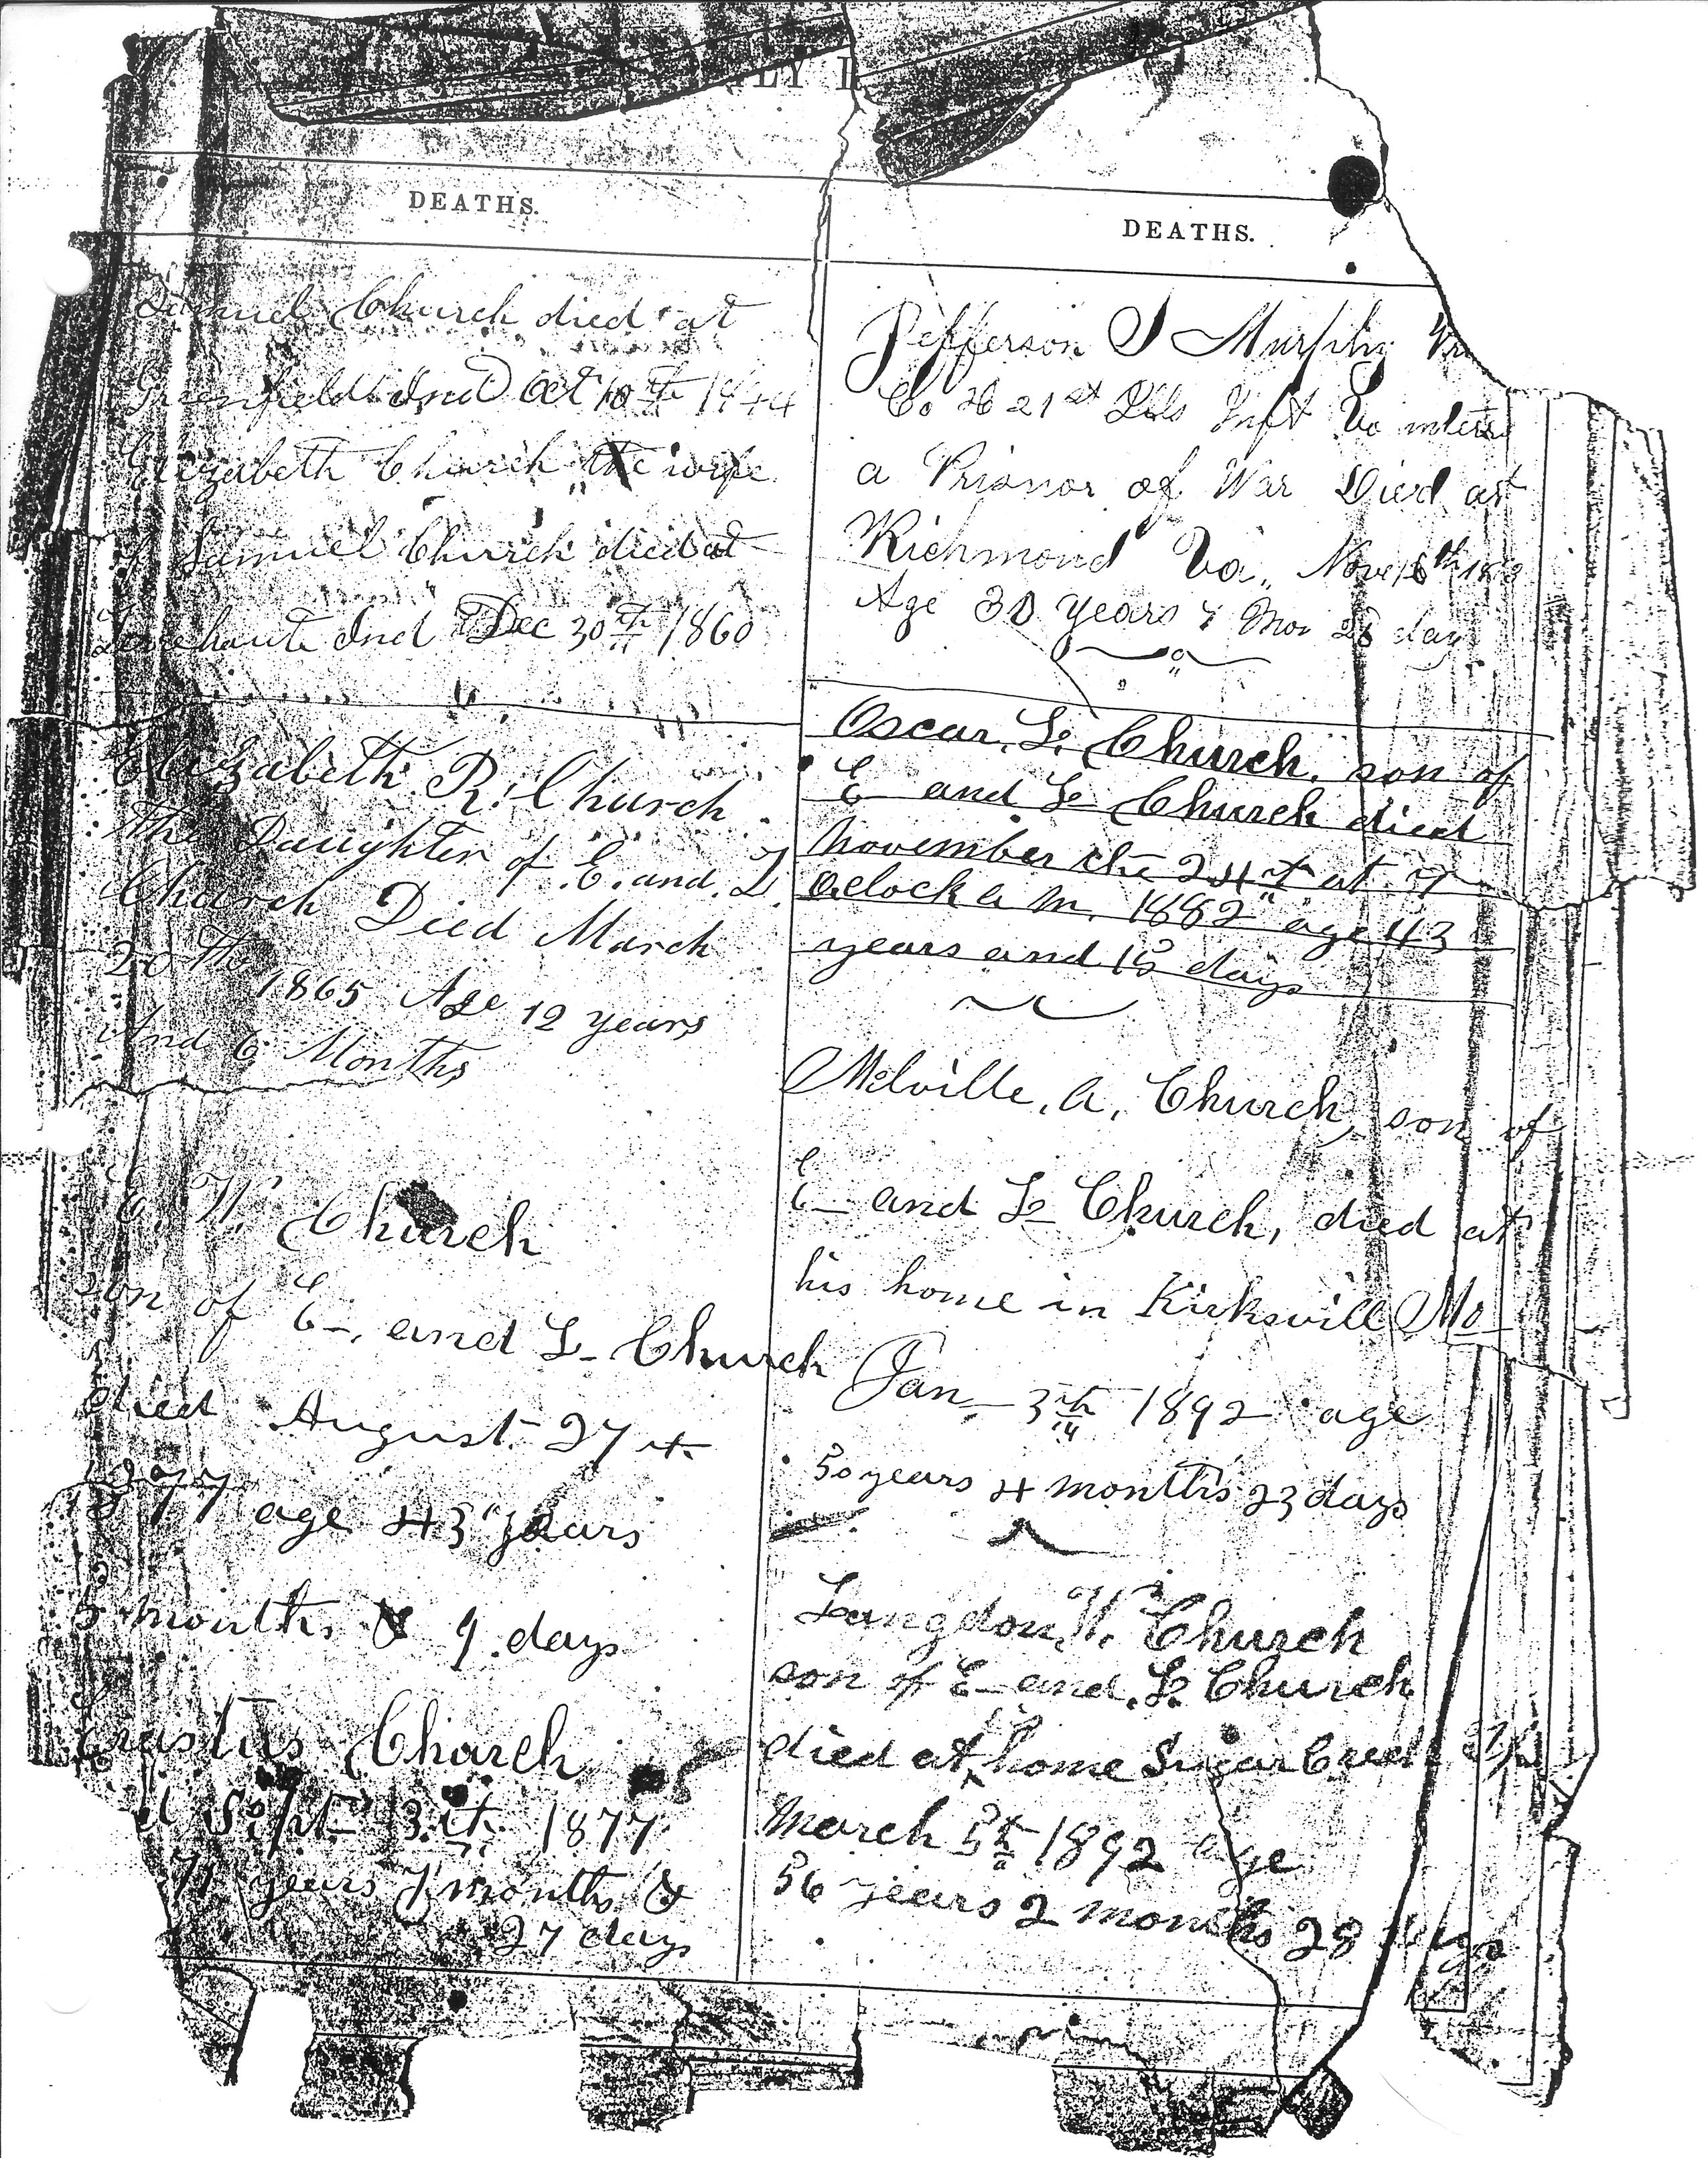 LY R
DEATHS.
Samuel Church died at
Greenfield Ind Oct 10th 1844
Elizabeth Church the wife
of Samuel Church died at
Terrehaute Ind Dec 30th 1860
Elizabeth R. Church
The Daughter of E. and. L.
Church Died March
20th
1865 Age 12 years
And 6 Months
E. W. Church
son of E-. and L- Church
died August 27th
1877 age 43 years
5 months & 9 days
Erastus Church
d Sept 13th 1877
71 years 7 months &
27 days
DEATHS.
Jefferson S Murphy
Co H 21st Ills Inft Volunteers
a Prisnor of War Died at
Richmond Va. Nove 16th 1863
Age 30 years Mon 28 day
Oscar. L. Church, son of
E and L Church died
November the 24th at 7
Oclock a m. 1882 age 43
years and 15 days
Melville. A. Church, son of
E- and L- Church, died at
his home in Kirksvill Mo
Jan- 3th 1892 age
50 years 4 months 23 days
Langdon. W. Church
son of E- and. L. Church
died at home Sugar Creek
March 5th 1892 age
56 years 2 months 28 days